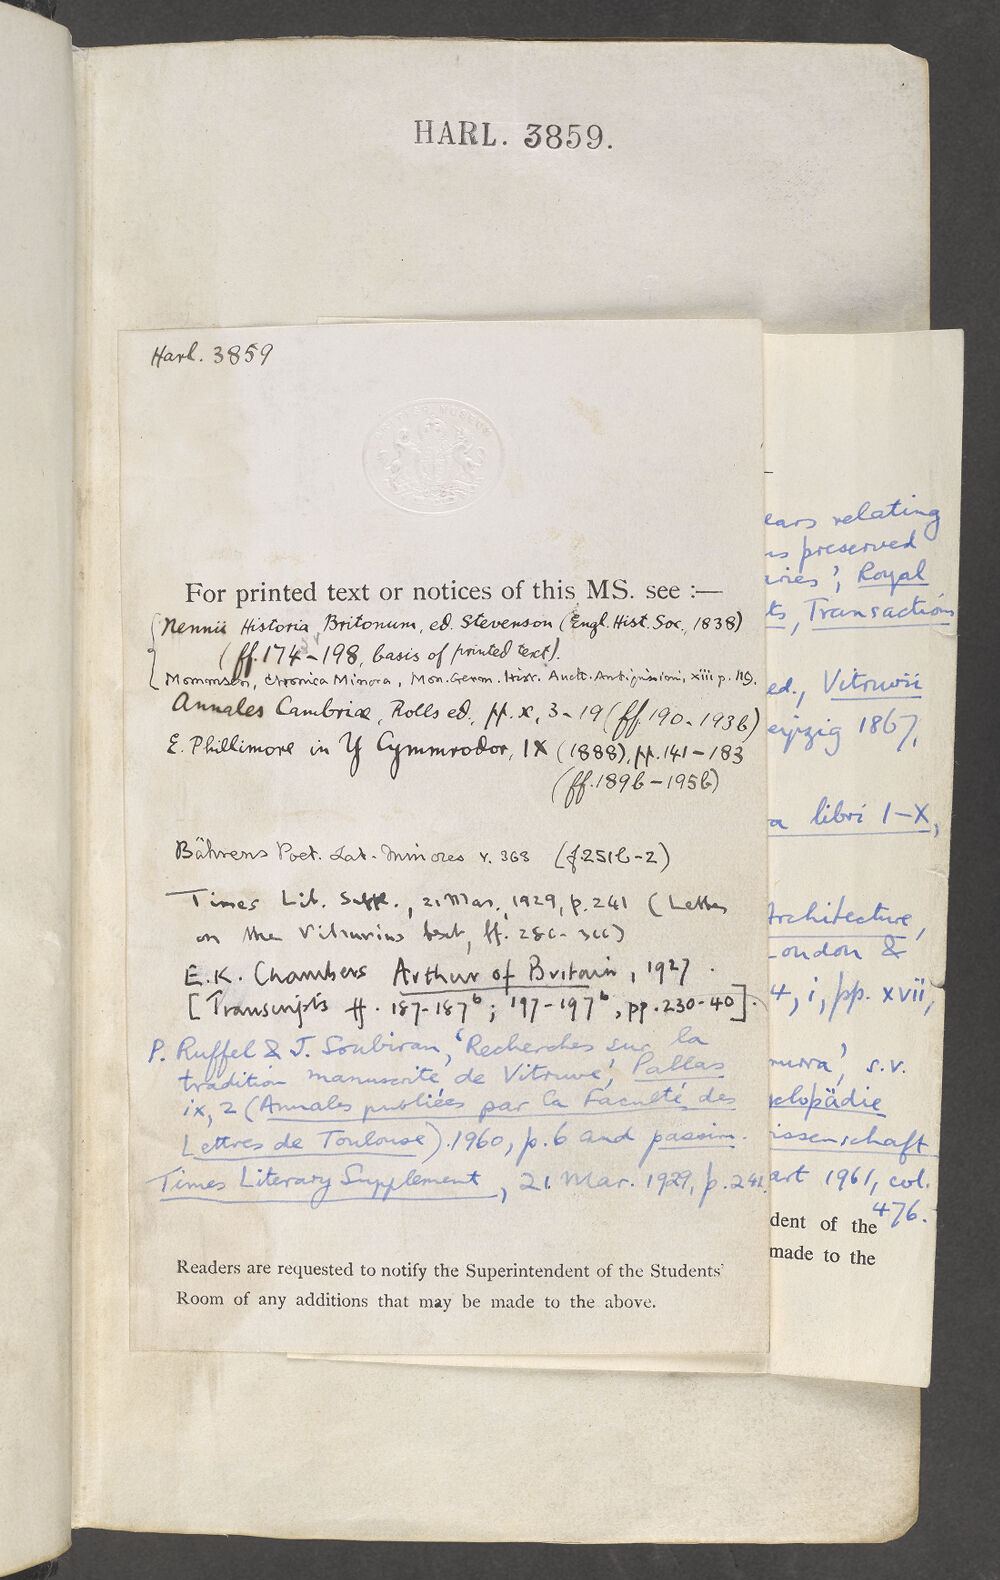 HARL. 3859.
Harl. 3859
For printed text or notices of this MS. see :—
Nennii Historia Britonum, ed. Stevenson (Engl. Hist. Soc., 1838)
(ff. 174–198, basis of printed text).
Mommsen, Chronica Minora, Mon. Germ. Hist. Auct. Antiquissimi, xiii p. 119.
Annales Cambriæ, Rolls ed., pp. x, 3–19 (ff. 190–193b)
E. Phillimore in Y Cymmrodor, IX (1888), pp. 141–183
(ff. 189b–195b)
Bährens Poet. Lat. Minores v. 368 (f 251b–2)
Times Lit. Suppl., 21 Mar., 1929, p. 241 (Letter
on the Vitruvius text, ff.
E.K. Chambers Arthur of Britain, 1927.
[Transcripts ff. 187–187b; 197–197b, pp. 230–40].
P. Ruffel & J. Soubiran, 'Recherches sur la
tradition manuscrite de Vitruve', Pallas
ix, 2 (Annales publiées par la Faculté des
Lettres de Toulouse). 1960, p. 6 and passim.
Times Literary Supplement, 21 Mar. 1929, p. 241.
Readers are requested to notify the Superintendent of the Students'
Room of any additions that may be made to the above.
ears relating
ns preserved
aries', Royal
ts, Transactions
ed., Vitruvii
eipzig 1867,
a libri I–X,
Architecture,
London &
4, i, pp. xvii,
murra', s.v.
yclopädie
issenschaft
art 1961, col.
476.
dent of the
made to the